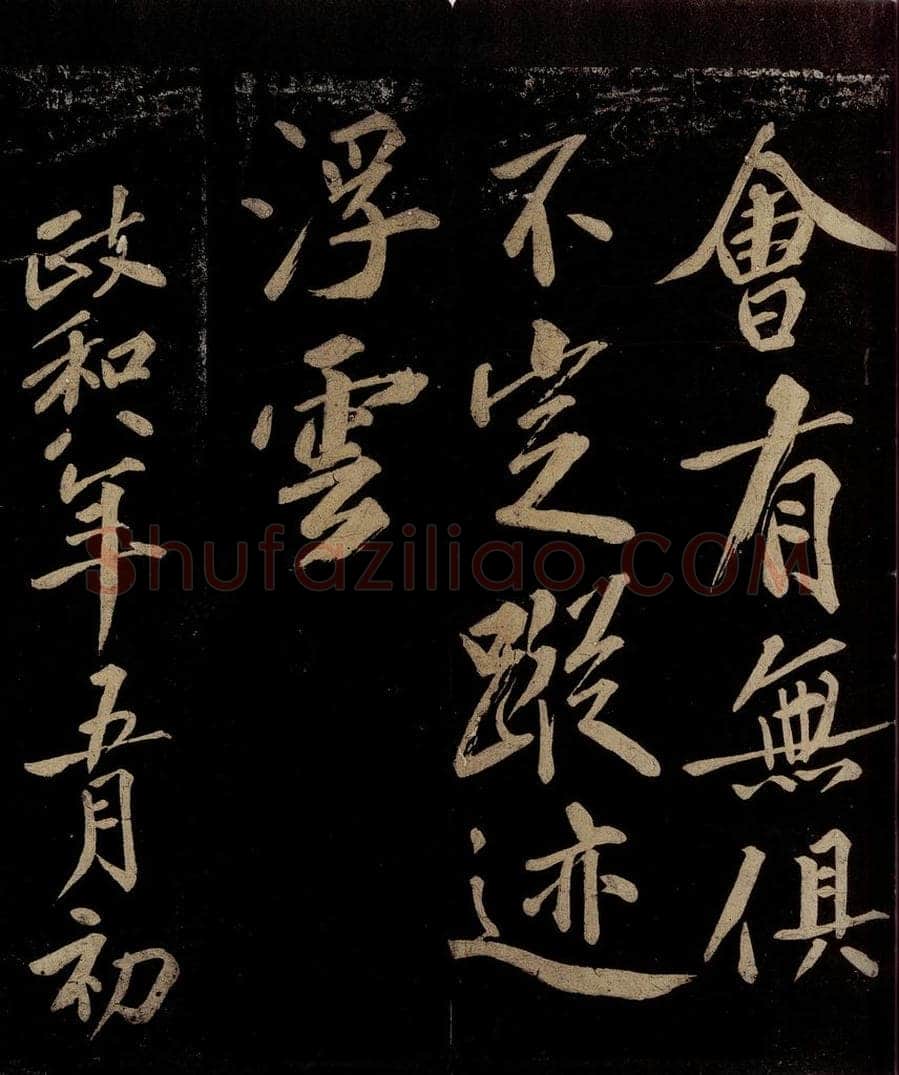 會有無俱
不定蹤迹
浮雲
政和八年五月初
Shufaziliao.COM